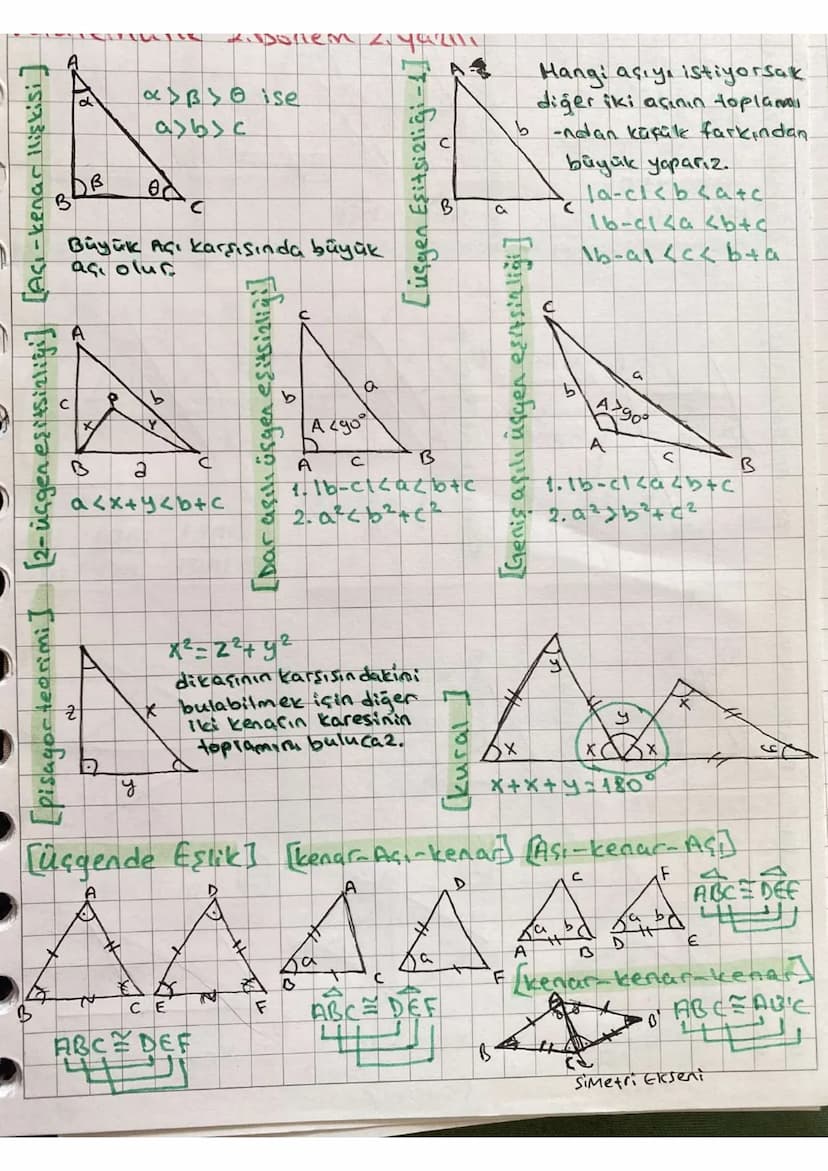 2. Dönem 2. yazılı
[Açı-kenar İlişkisi]
A
α
B
β
θ
C
α>β>θ ise
a>b>c
Büyük Açı karşısında büyük
açı olur.
[üçgen Eşitsizliği-1]
A
c
b
B
a
C
Hangi açıyı istiyorsak
diğer iki açının toplamı
-ndan küçük farkından
büyük yaparız.
|a-c|<b<a+c
|b-c|<a<b+c
|b-a|<c<b+a
[2-üçgen eşitsizliği]
A
c
P
b
x
y
B
a
C
a<x+y<b+c
[Dar açılı üçgen eşitsizliği]
C
b
a
A<90°
A
c
B
1. |b-c|<a<b+c
2. a²<b²+c²
[Geniş açılı üçgen eşitsizliği]
C
a
b
A>90°
A
c
B
1. |b-c|<a<b+c
2. a²>b²+c²
[pisagor teorimi]
z
x
y
x²=z²+y²
dik açının karşısındakini
bulabilmek için diğer
iki kenarın karesinin
toplamını bulucaz.
[kural]
y
x
x
y
x
x
x+x+y=180°
[üçgende Eşlik]
A
D
B
C
E
F
ABC≅DEF
[kenar-Açı-kenar]
A
D
a
a
B
C
F
ABC≅DEF
[Açı-kenar-Açı]
C
F
a
b
a
b
A
B
D
E
ABC≅DEF
[kenar-kenar-kenar]
A
B'
B
C
ABC≅AB'C
Simetri Ekseni